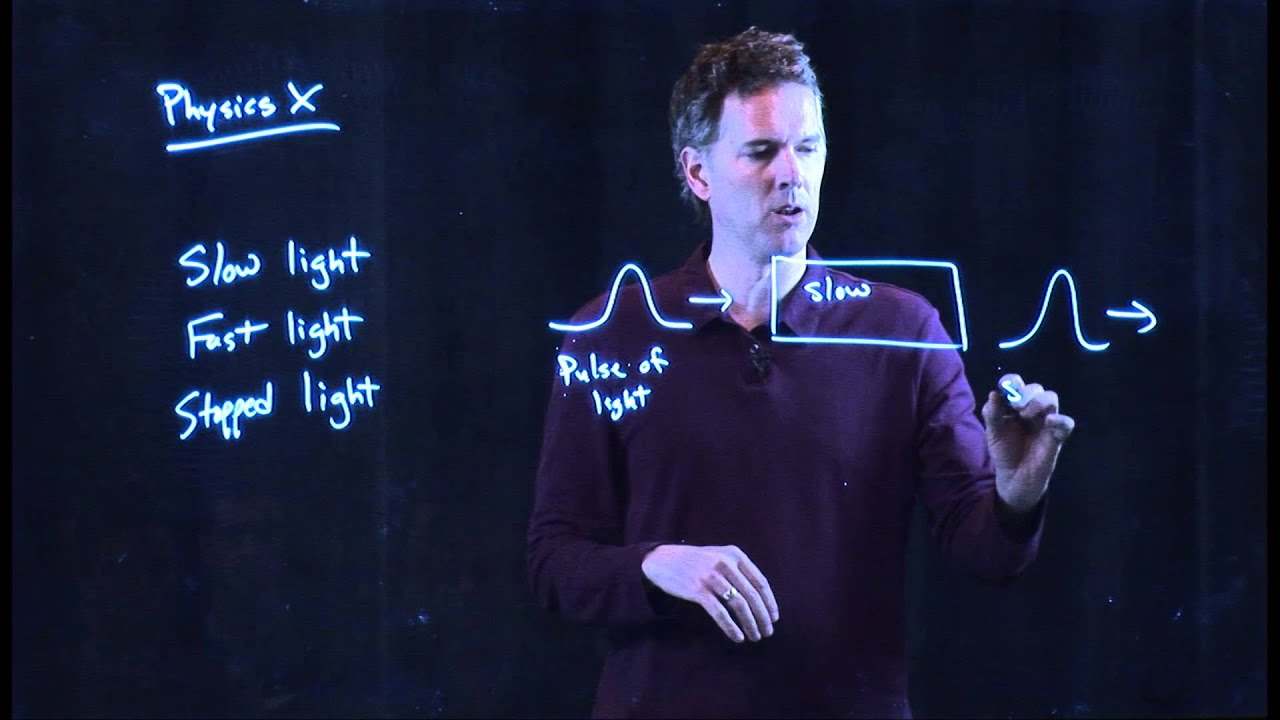 Physics X
Slow light
Fast light
Stopped light
Pulse of
light
Slow
S